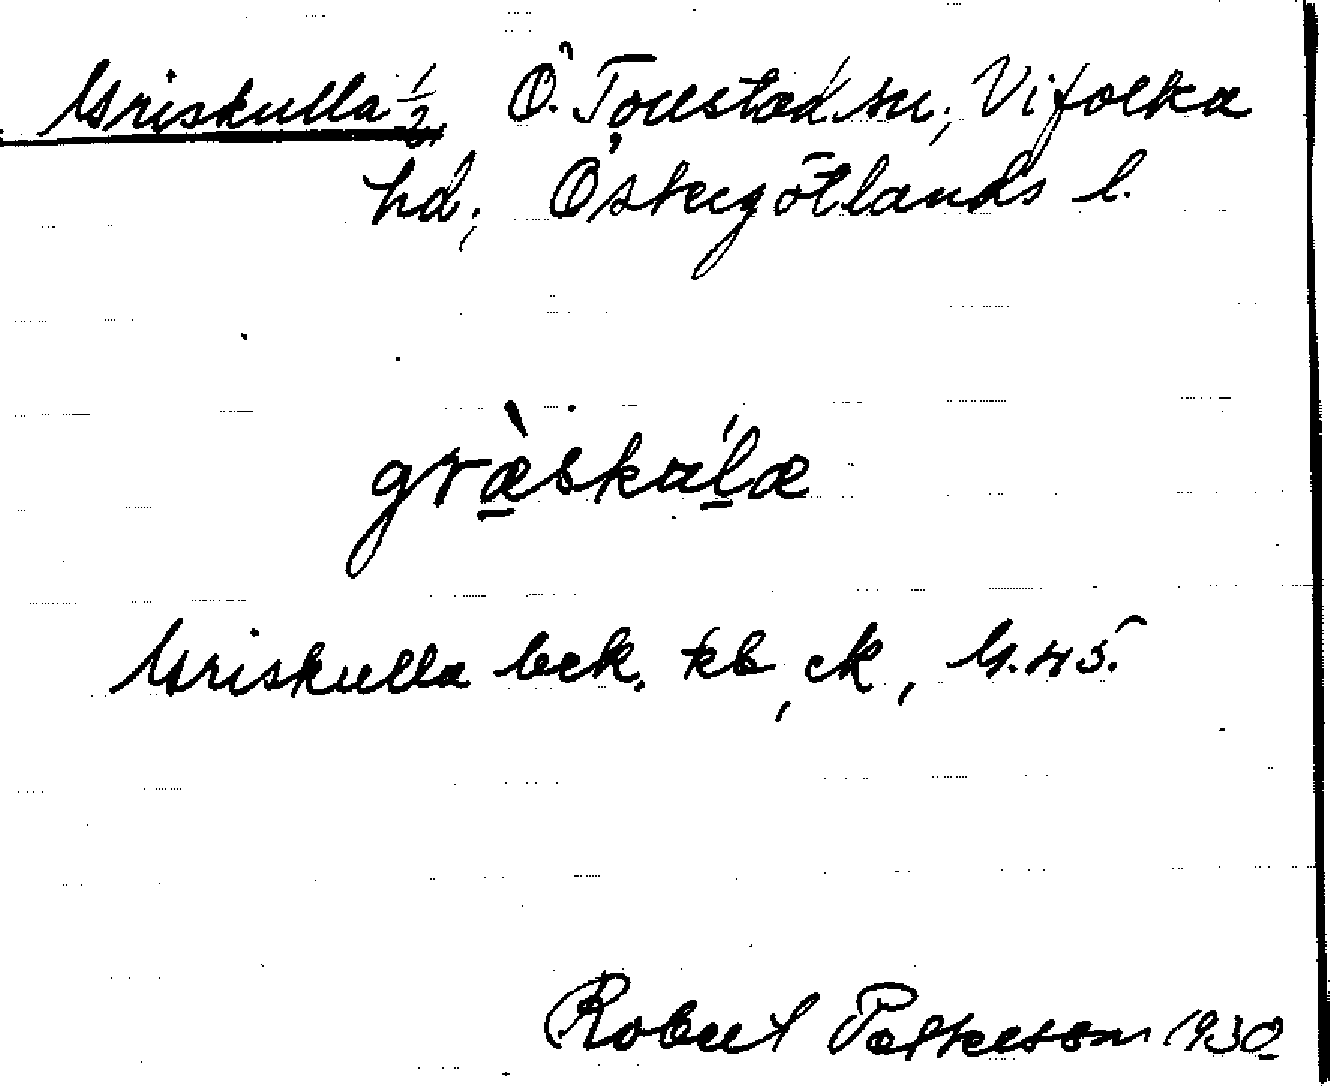 Griskulla 1/2, Ö. Tollstad sn, Vifolka
hd, Östergötlands l.
græskula
Griskulla bek. kb, ck, G. 45.
Robert Petterson 1930